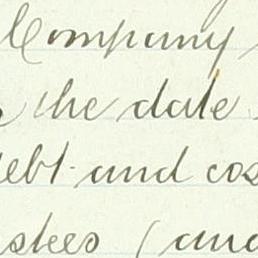 Company
the date
debt and cos
stees (and